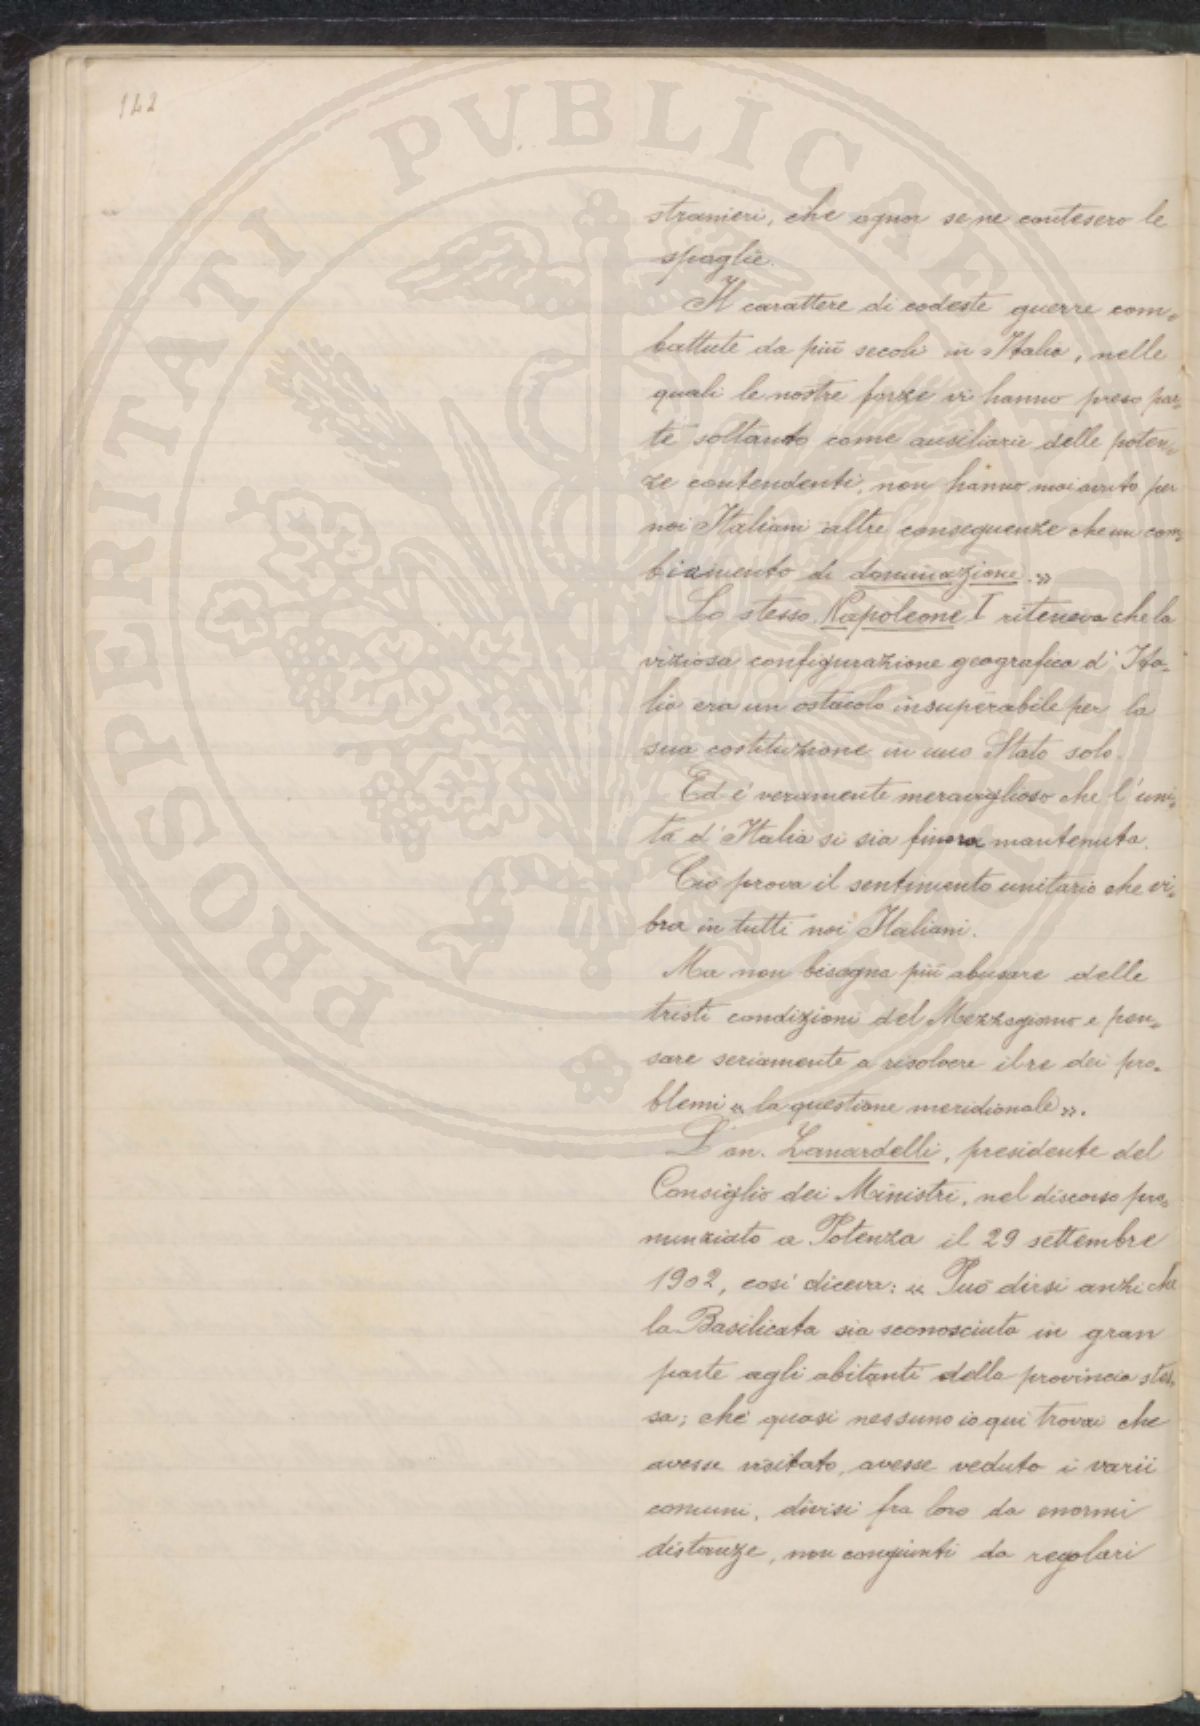 142
stranieri, che ognor se ne contesero le
spoglie.
Il carattere di codeste guerre com=
battute da più secoli in Italia, nelle
quali le nostre forze vi hanno preso par=
te soltanto come ausiliarie delle poten=
ze contendenti, non hanno mai avuto per
noi Italiani altre conseguenze che un cam=
biamento di dominazione.»
Lo stesso Napoleone I riteneva che la
viziosa configurazione geografica d'Ita=
lia era un ostacolo insuperabile per la
sua costituzione in uno Stato solo.
Ed è veramente meraviglioso che l'uni=
tà d'Italia si sia finora mantenuta.
Ciò prova il sentimento unitario che vi=
bra in tutti noi Italiani.
Ma non bisogna più abusare delle
tristi condizioni del Mezzogiorno e pen=
sare seriamente a risolvere il re dei pro=
blemi «la questione meridionale».
L'on. Zanardelli, presidente del
Consiglio dei Ministri, nel discorso pro=
nunziato a Potenza il 29 settembre
1902, così diceva: « Può dirsi anzi che
la Basilicata sia sconosciuta in gran
parte agli abitanti della provincia stes=
sa; chè quasi nessuno io qui trovai che
avesse visitato, avesse veduto i varii
comuni, divisi fra loro da enormi
distanze, non congiunti da regolari
PROSPERITATI PVBLICAE